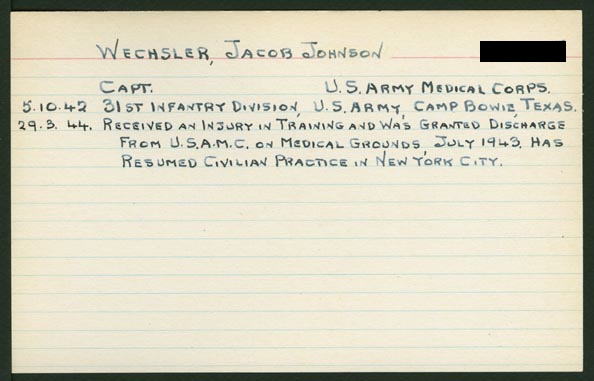 WECHSLER, JACOB JOHNSON
CAPT. U.S. ARMY MEDICAL CORPS.
5.10.42 31ST INFANTRY DIVISION, U.S. ARMY, CAMP BOWIE, TEXAS.
29.3.44. RECEIVED AN INJURY IN TRAINING AND WAS GRANTED DISCHARGE
FROM U.S.A.M.C. ON MEDICAL GROUNDS, JULY 1943. HAS
RESUMED CIVILIAN PRACTICE IN NEW YORK CITY.